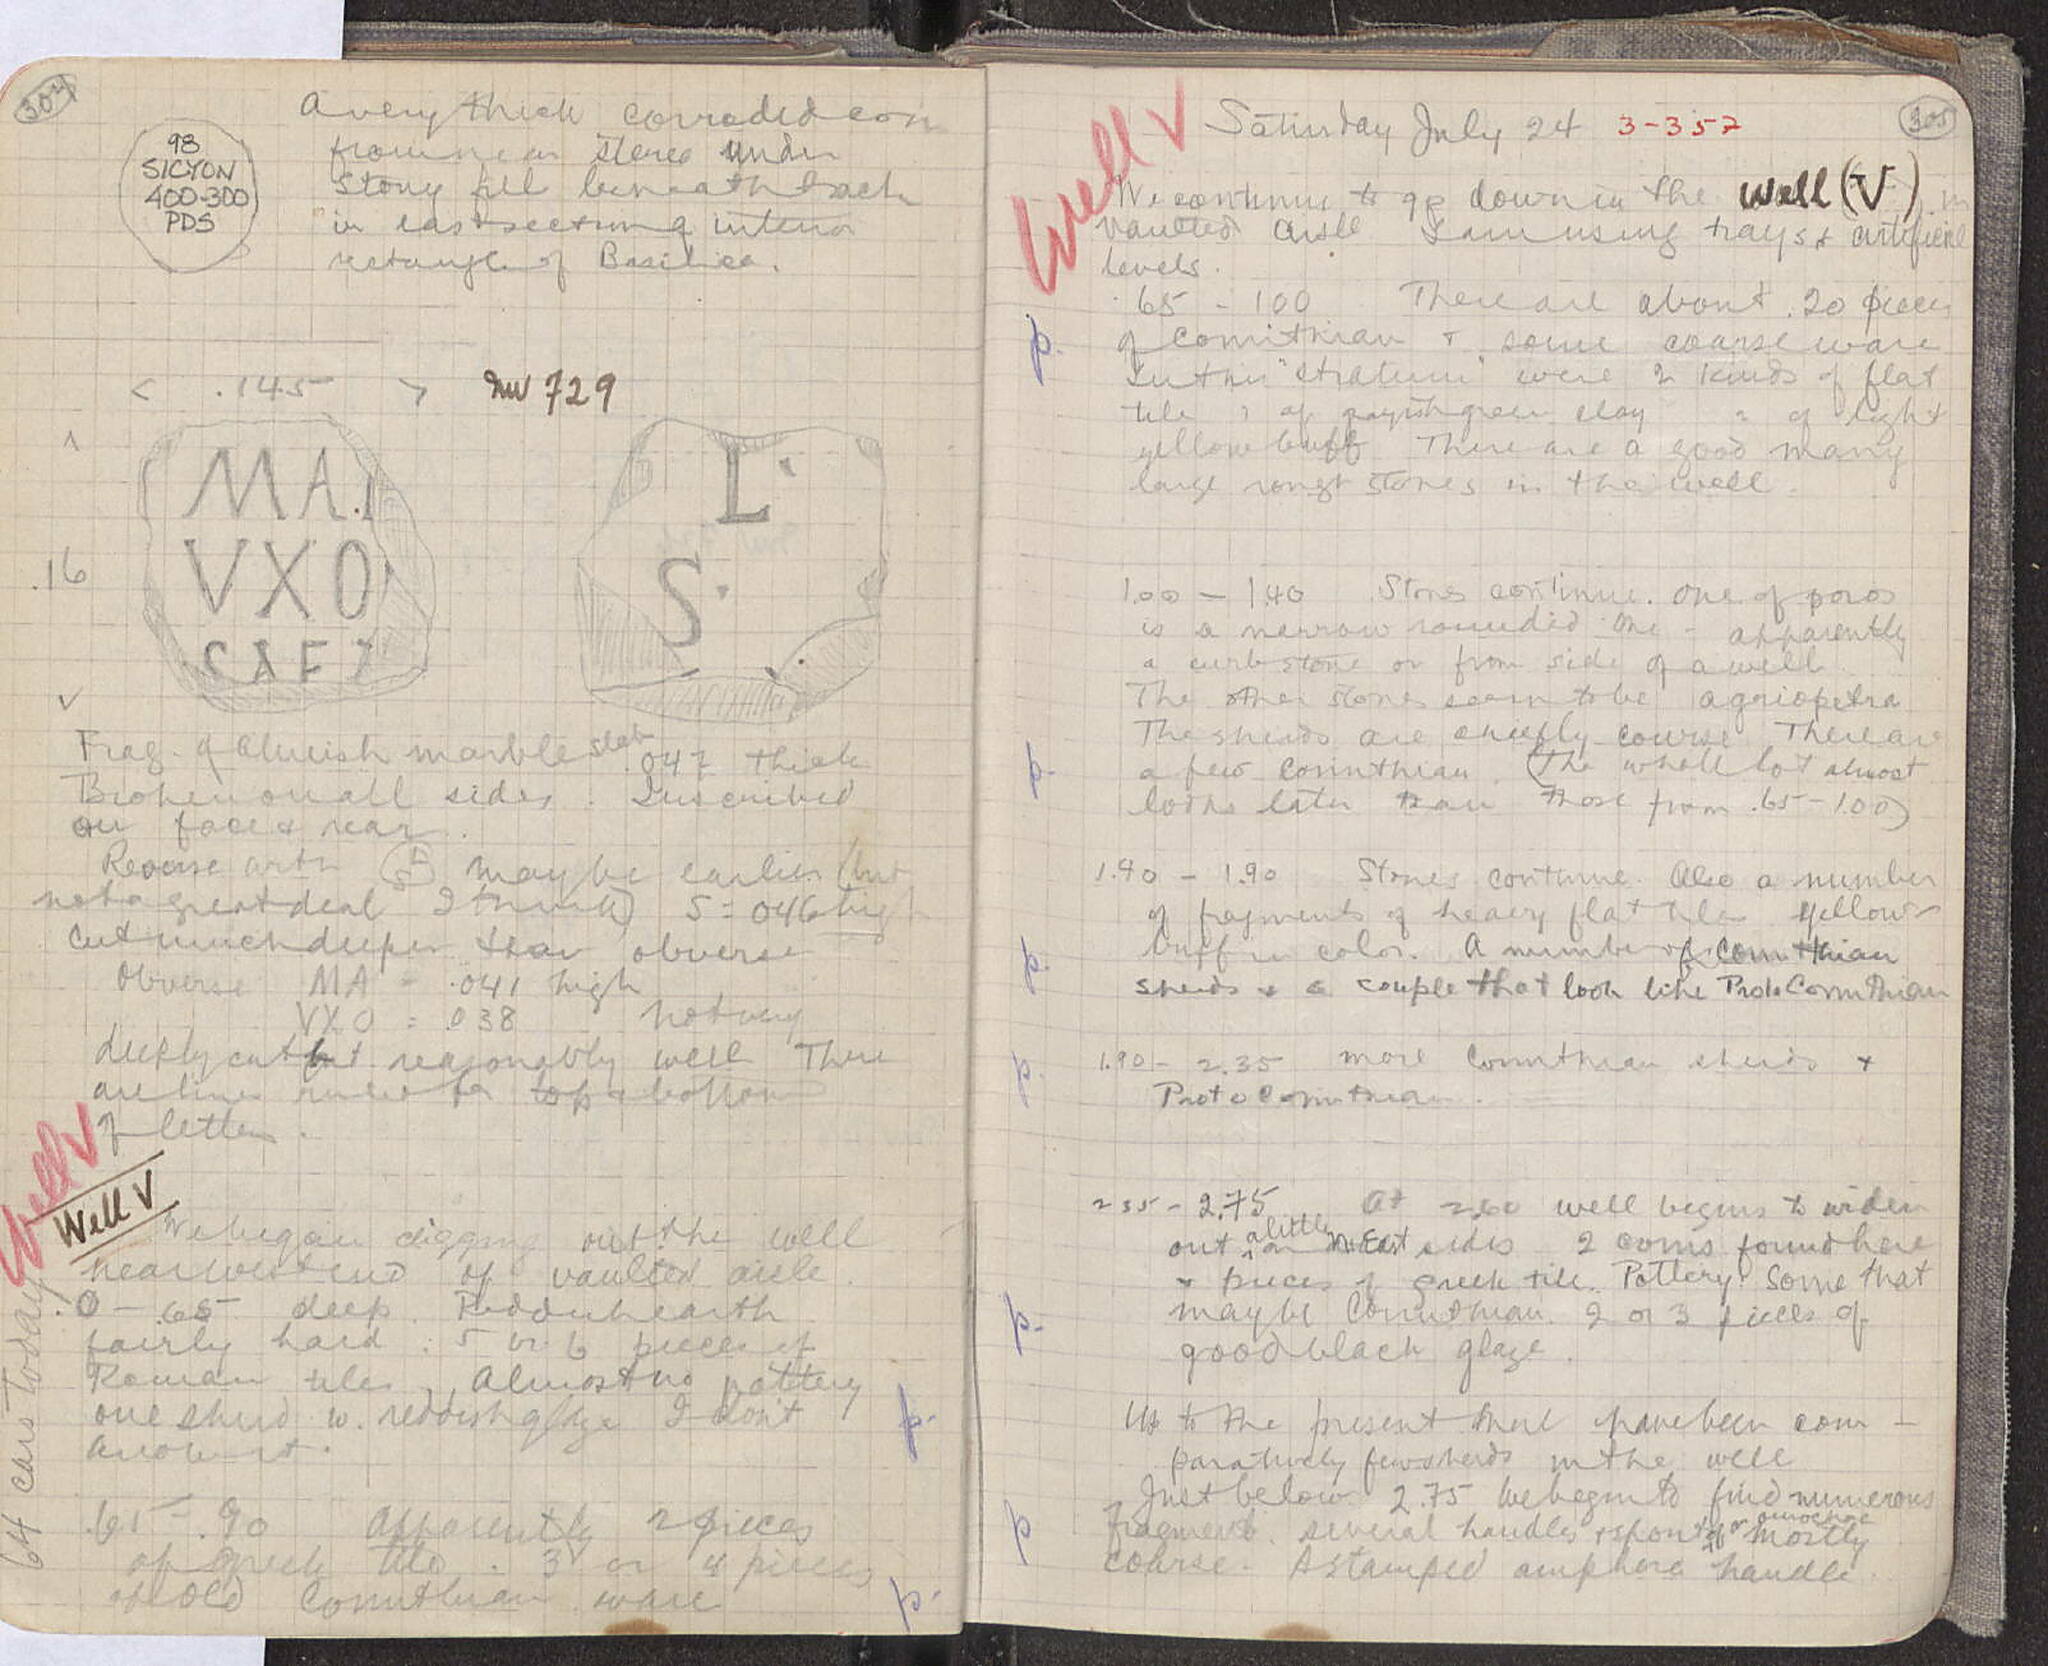 304
98
SICYON
400-300
PDS
A very thick corroded coin
from near stereo under
stony fill beneath back
in east section of interior
rectangle of Basilica.
< .145 > Inv 729
.16
MA.I
VXO
SAF
L
S
Frag. of bluish marble slab .047 thick
Broken on all sides. Inscribed
on face & rear.
Reverse with L S may be earlier (but
not a great deal I think) S = .046 high
Cut much deeper than obverse
Obverse MA = .041 high
VXO = .038 not very
deeply cut but reasonably well There
are lines ruled for top & bottom
of letters.
Well V
Well V
We began digging out the well
near west end of vaulted aisle.
0 - .65 deep. Reddish earth
fairly hard: 5 or 6 pieces of
Roman tiles, Almost no pottery
one sherd w. reddish glaze I don't
know it.
p.
.65 - .90 Apparently 2 pieces
of Greek tile. 3 or 4 pieces
of Old Corinthian ware
p.
64 cars today
Saturday July 24 3-357
305
Well V
We continue to go down in the Well (V) in
vaulted aisle I am using trays & artificial
levels.
.65 - 1.00 There are about 20 pieces
p. of Corinthian & some coarse ware
In this "stratum" were 2 kinds of flat
tile 1 of grayish green clay 2 of light
yellow buff There are a good many
large rough stones in the well.
1.00 - 1.40 Stones continue. One of poros
is a narrow rounded one - apparently
a curbstone or from side of a well.
The other stones seem to be agriopetra
The sherds are chiefly course There are
p. a few Corinthian. (The whole lot almost
looks later than those from .65-1.00)
1.40 - 1.90 Stones continue. Also a number
of fragments of heavy flat tiles yellow
p. buff in color. A number of Corinthian
sherds & a couple that look like ProtoCorinthian
p. 1.90 - 2.35 more Corinthian sherds &
ProtoCorinthian.
2.35 - 2.75 At 2.60 well begins to widen
out a little on N. East sides 2 coins found here
& pieces of greek tile. Pottery: Some that
p. may be Corinthian. 2 or 3 pieces of
good black glaze.
Up to the present there have been com-
paratively few sherds in the well
Just below 2.75 we began to find numerous
p fragments. several handles & spout of an oinochoe mostly
coarse. A stamped amphora handle.